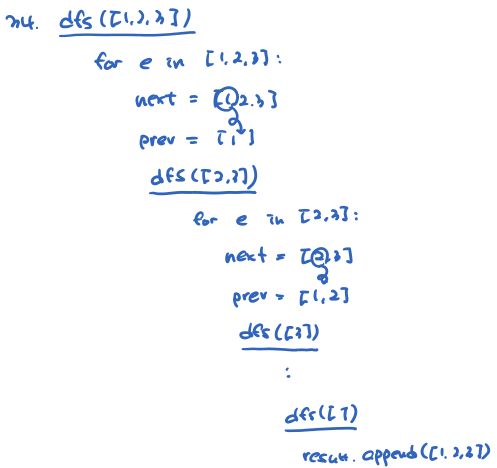 dfs([1,2,3])
for e in [1,2,3]:
next = [1,2.3]
prev = [1]
dfs([2,3])
for e in [2,3]:
next = [2,3]
prev = [1,2]
dfs([3])
:
dfs([])
result.append([1.2,3])